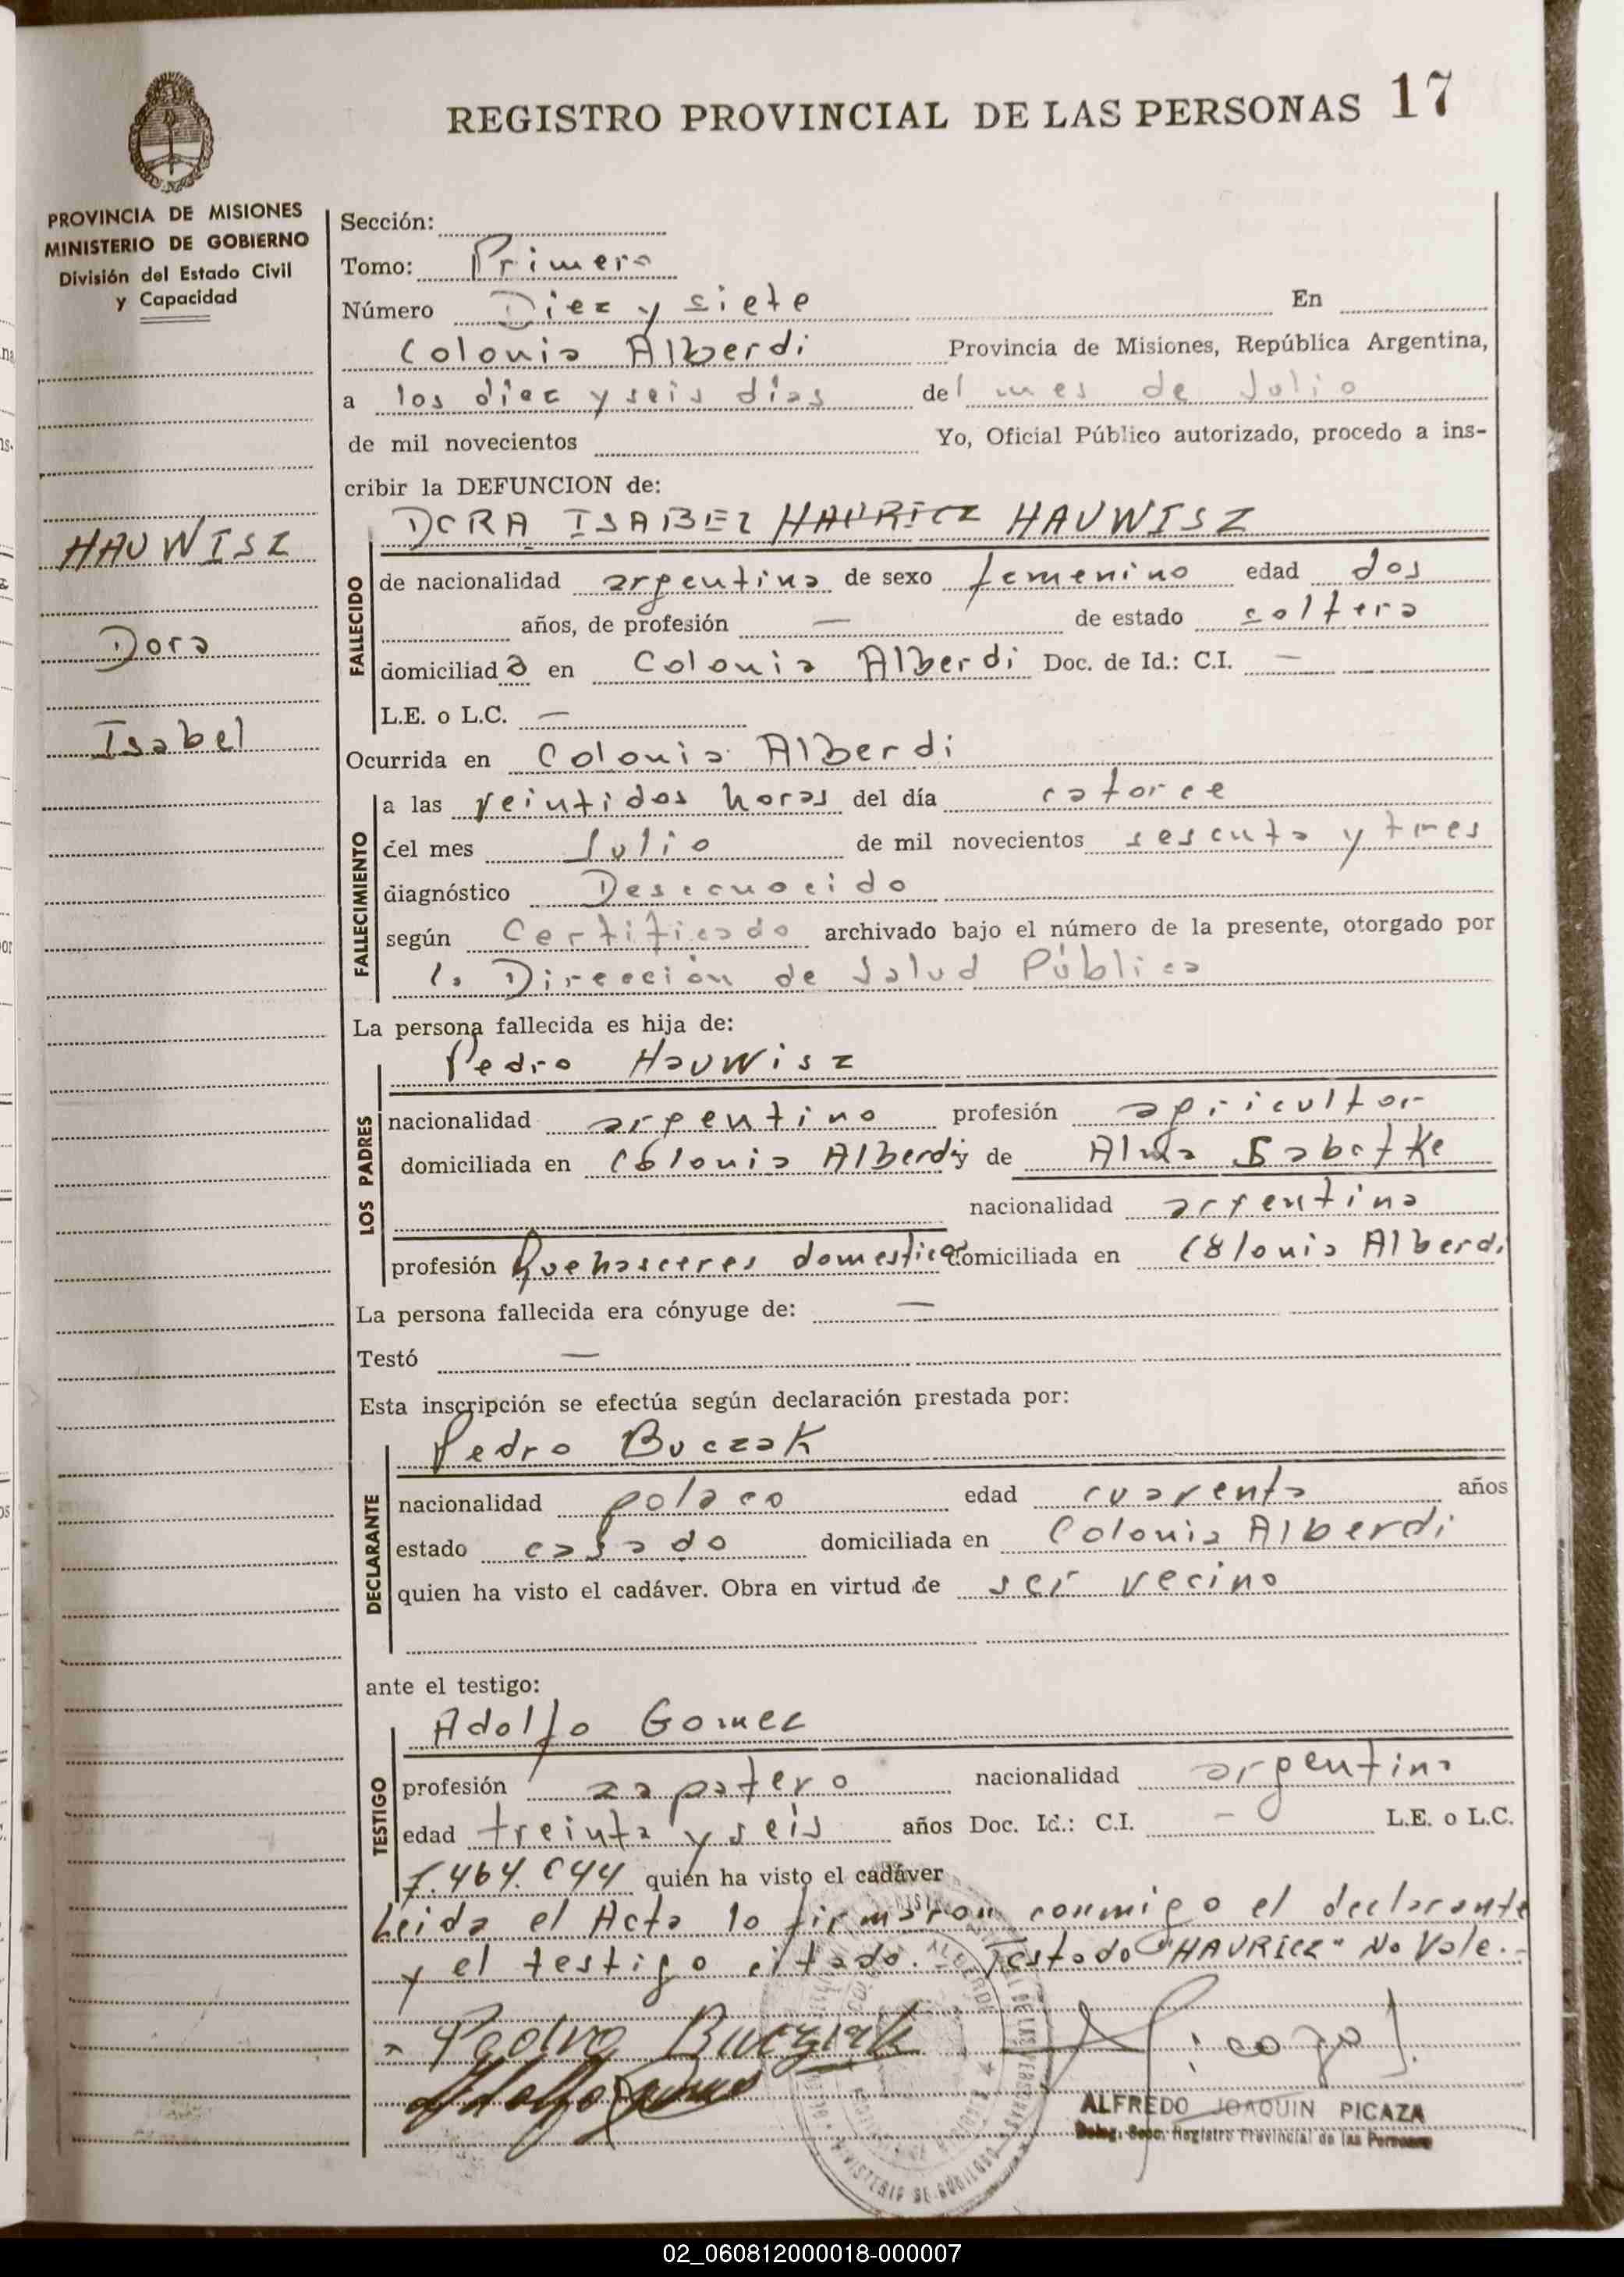 REGISTRO PROVINCIAL DE LAS PERSONAS 17
PROVINCIA DE MISIONES
MINISTERIO DE GOBIERNO
División del Estado Civil
y Capacidad
HAUWISZ
Dora
Isabel
Sección:
Tomo: Primero
Número Diez y siete En
Colonia Alberdi Provincia de Misiones, República Argentina,
a los diez y seis días del mes de Julio
de mil novecientos Yo, Oficial Público autorizado, procedo a ins-
cribir la DEFUNCION de:
DORA ISABEL HAURICZ HAUWISZ
FALLECIDO
de nacionalidad argentina de sexo femenino edad dos
años, de profesión — de estado soltera
domiciliada en Colonia Alberdi Doc. de Id.: C.I. —
L.E. o L.C. —
Ocurrida en Colonia Alberdi
FALLECIMIENTO
a las veintidos horas del día catorce
del mes Julio de mil novecientos sesenta y tres
diagnóstico Desconocido
según Certificado archivado bajo el número de la presente, otorgado por
la Dirección de Salud Pública
La persona fallecida es hija de:
LOS PADRES
Pedro Hauwisz
nacionalidad argentino profesión agricultor
domiciliada en Colonia Alberdi y de Alma Sabotke
nacionalidad argentina
profesión Quehasceres domestico domiciliada en Colonia Alberdi
La persona fallecida era cónyuge de: —
Testó —
Esta inscripción se efectúa según declaración prestada por:
DECLARANTE
Pedro Buczak
nacionalidad polaco edad cuarenta años
estado casado domiciliada en Colonia Alberdi
quien ha visto el cadáver. Obra en virtud de ser vecino
ante el testigo:
TESTIGO
Adolfo Gomez
profesión zapatero nacionalidad argentina
edad treinta y seis años Doc. Id.: C.I. — L.E. o L.C.
7.464.644 quien ha visto el cadáver
Leida el Acta lo firmaron conmigo el declarante
y el testigo citado. Testado "HAURICZ" No Vale.-
Pedro Buczak
Picaza J.
Adolfo Gomez
ALFREDO JOAQUIN PICAZA
Registro Provincial de las Personas
MINISTERIO DE GOBIERNO
02_060812000018-000007